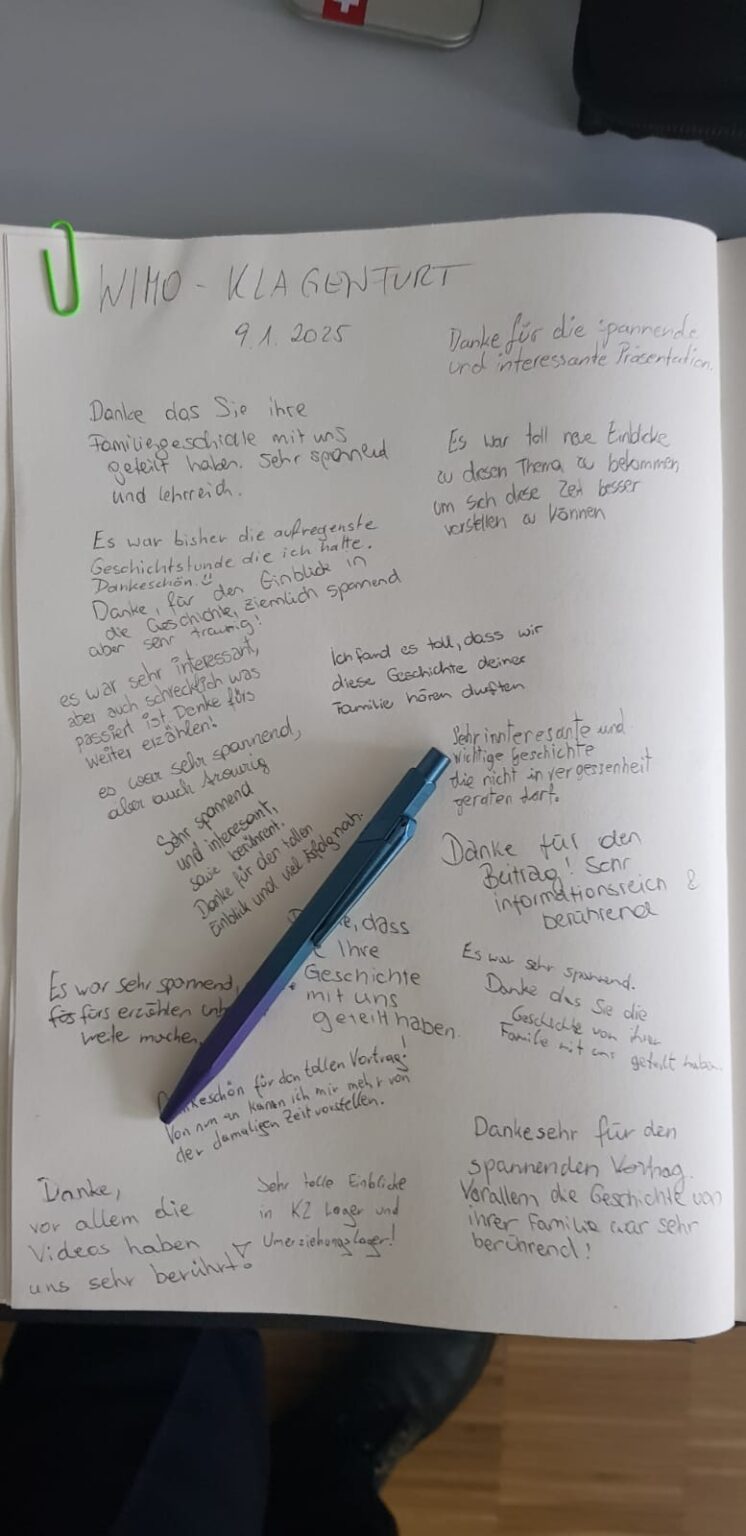 WIMO - KLAGENFURT
9.1.2025
Danke für die spannende
und interessante Präsentation.
Danke das Sie ihre
Familiengeschichte mit uns
geteilt haben. Sehr spannend
und lehrreich.
Es war toll neue Einblicke
zu diesen Thema zu bekommen
um sich diese Zeit besser
vorstellen zu können
Es war bisher die aufregenste
Geschichtstunde die ich hatte.
Dankeschön.
Danke, für den Einblick in
die Geschichte, ziemlich spannend
aber sehr traurig!
Ich fand es toll, dass wir
diese Geschichte deiner
Familie hören durften
es war sehr interessant,
aber auch schrecklich was
passiert ist. Danke fürs
weiter erzählen!
es war sehr spannend,
aber auch traurig
Sehr innteresante und
wichtige Geschichte
die nicht in vergessenheit
geraten darf.
Sehr spannend
und interesant,
sowie berührent.
Danke für den tollen
Einblick und viel Erfolg noch.
Danke für den
Beitrag! Sehr
informationsreich &
berührend
dass
Ihre
Geschichte
mit uns
geteilt haben.
Es war sehr spannend.
Danke das Sie die
Geschichte von ihrer
Familie mit uns geteilt haben.
Es war sehr spannend,
fürs erzählen
weite machen
keschön für den tollen Vortrag!
Von nun an kann ich mir mehr von
der damaligen Zeit vorstellen.
Dankesehr für den
spannenden Vortrag.
Vorallem die Geschichte von
ihrer Familie war sehr
berührend!
Danke,
vor allem die
Videos haben
uns sehr berührt!
Sehr tolle Einblicke
in KZ Lager und
Umerziehungslager!